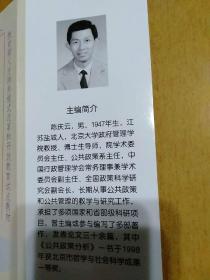 主编简介
陈庆云，男，1947年生，江
苏盐城人，北京大学政府管理学
院教授、博士生导师，院学术委
员会主任，公共政策系主任，中
国行政管理学会常务理事兼学术
委员会副主任，全国政策科学研
究会副会长，长期从事公共政策
和公共管理的教学与研究工作，
承担了多项国家和省部级科研项
目，曾主编或参与编写了多部著
作，发表论文三十余篇，其中
《公共政策分析》一书于1998
年获北京市哲学与社会科学成果
一等奖。